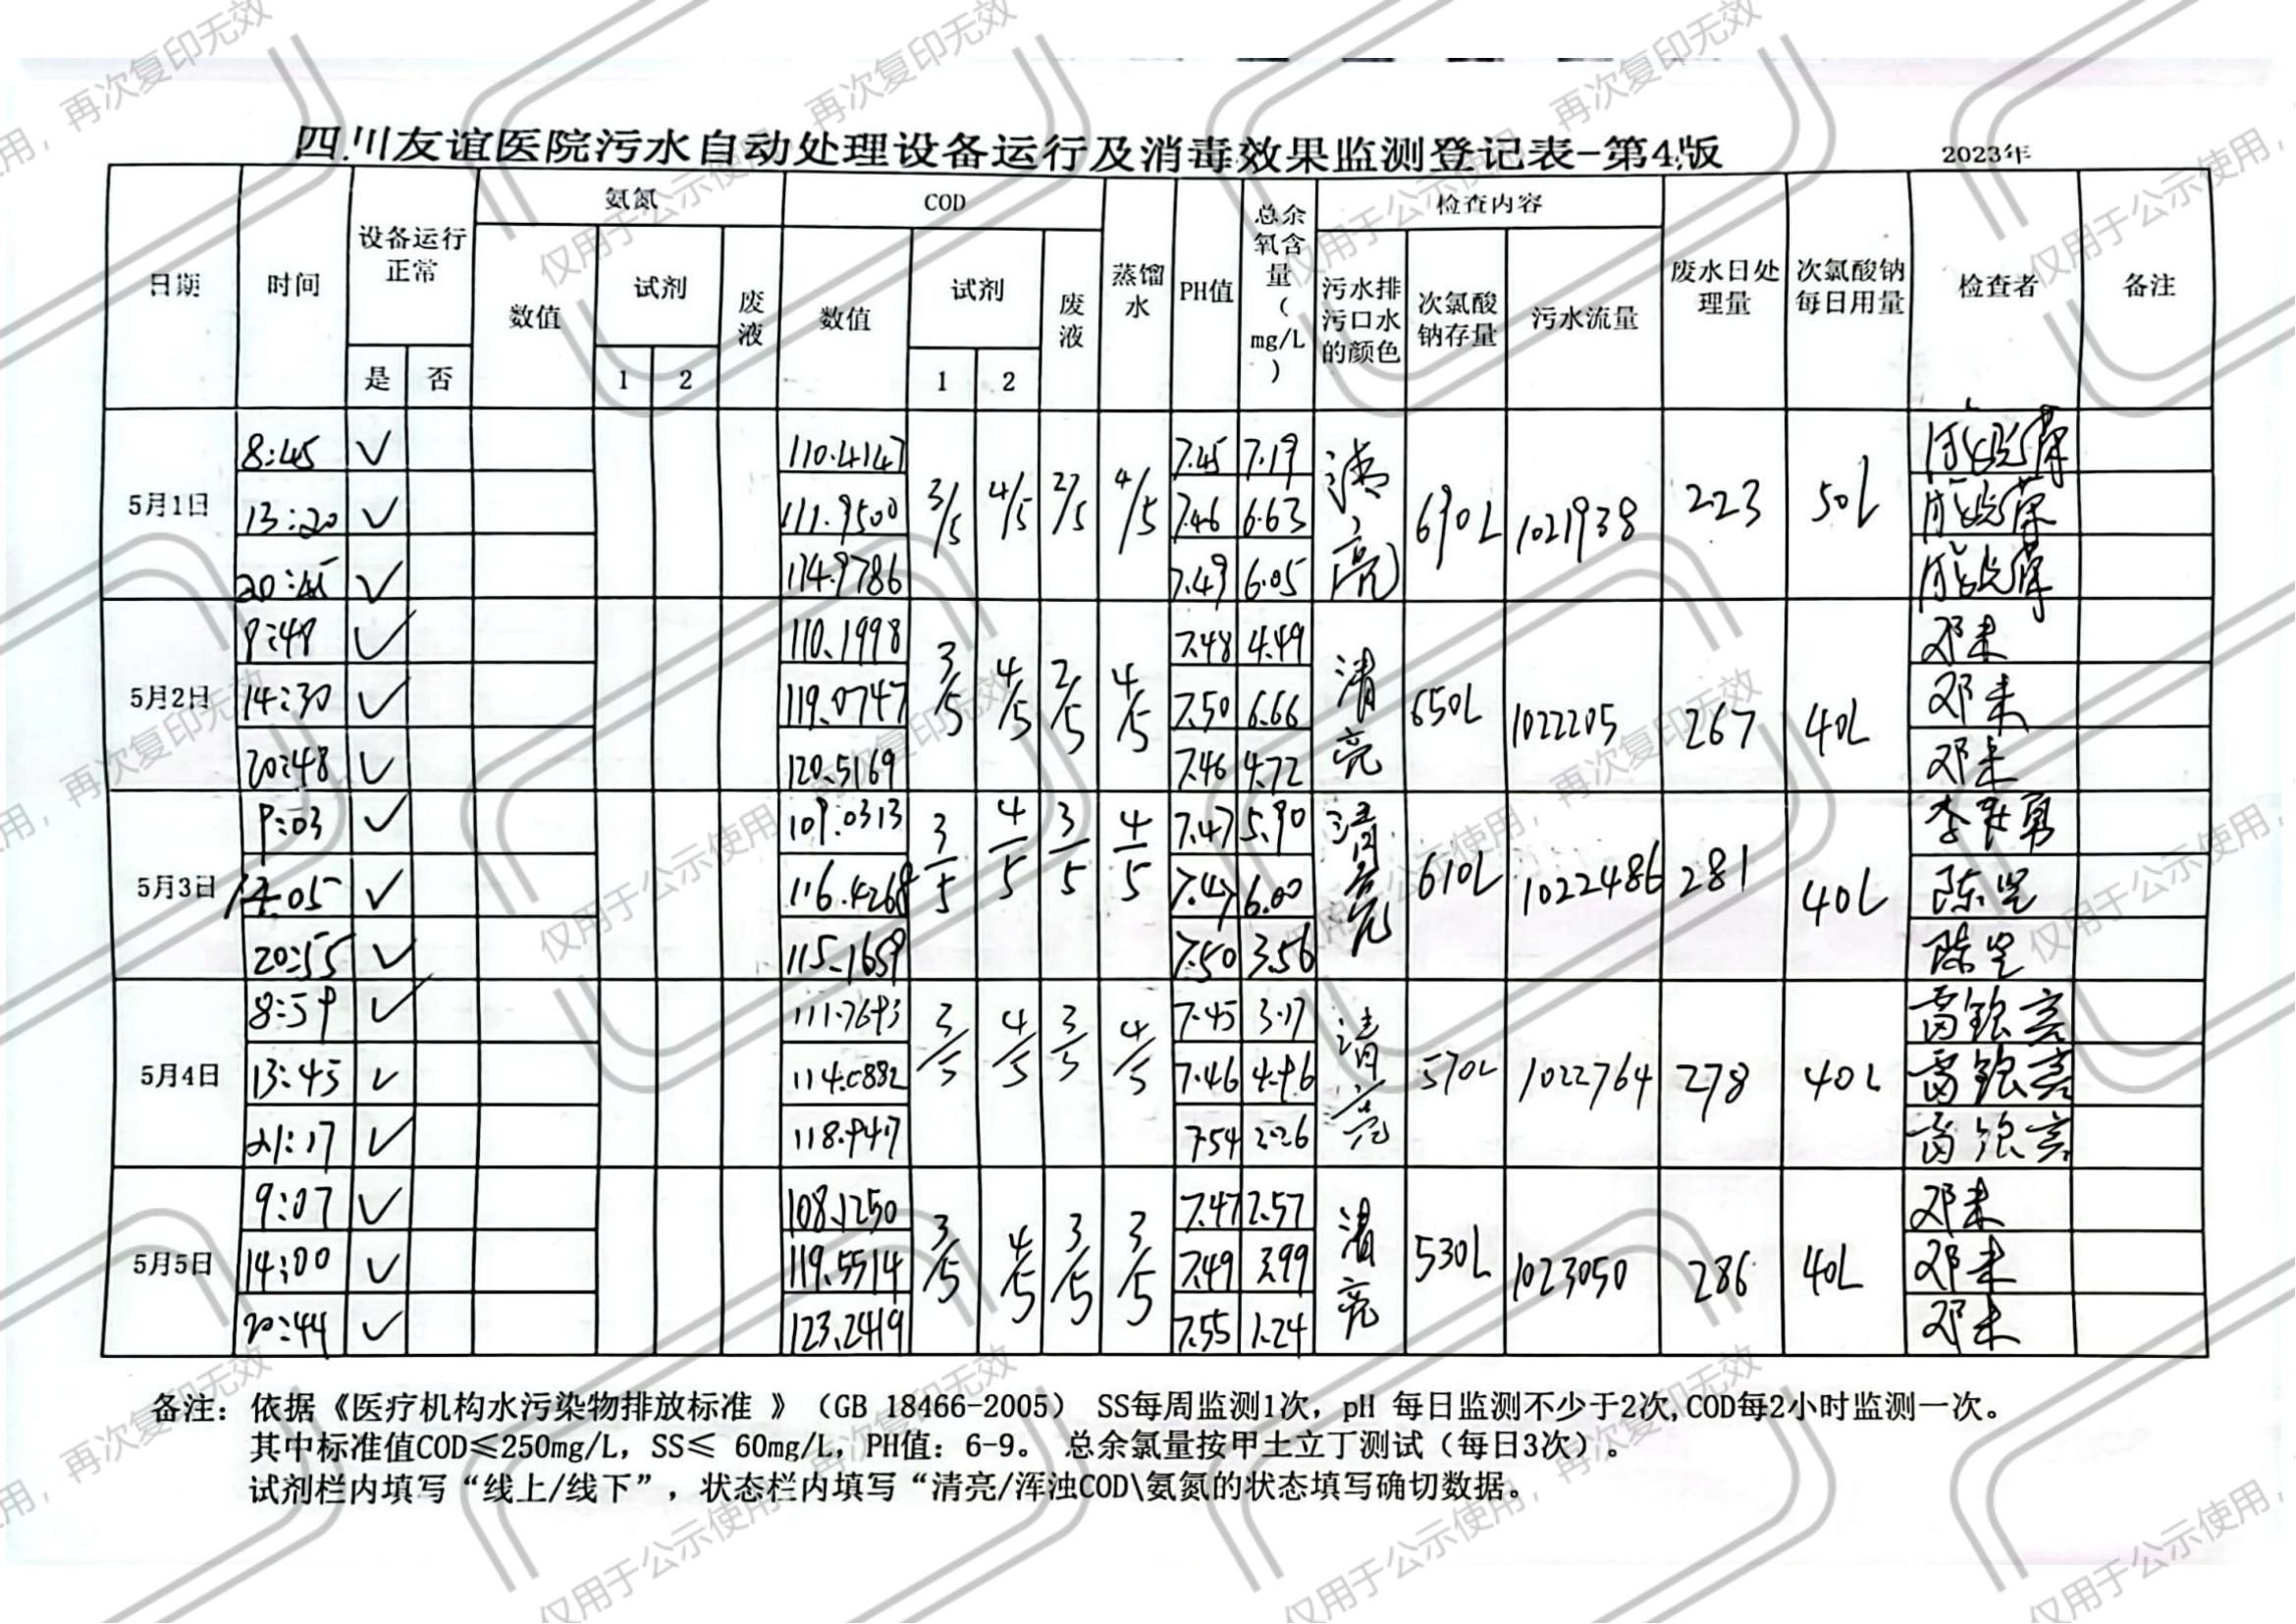 四川友谊医院污水自动处理设备运行及消毒效果监测登记表-第4版 2023年
日期 时间 设备运行正常 是 否 氨氮 数值 试剂 1 2 废液 COD 数值 试剂 1 2 废液 蒸馏水 PH值 总余氧含量(mg/L) 检查内容 污水排污口水的颜色 次氯酸钠存量 污水流量 废水日处理量 次氯酸钠每日用量 检查者 备注
5月1日
8:45 ✓ 110.4147 7.45 7.19
13:20 ✓ 111.9500 3/5 4/5 2/5 4/5 7.46 6.63 清亮 690L 1021938 223 50L
20:45 ✓ 114.9786 7.49 6.05
5月2日
9:49 ✓ 110.1998 7.48 4.49 邓未
14:30 ✓ 119.0747 3/5 4/5 2/5 4/5 7.50 6.66 清亮 650L 1022205 267 40L 邓未
20:48 ✓ 120.5169 7.46 4.72 邓未
5月3日
9:03 ✓ 109.0313 7.47 5.90
✓ 116.4268 3/5 4/5 3/5 4/5 7.47 6.00 清亮 610L 1022486 281 40L
20:55 ✓ 115.1659 7.50 3.56
5月4日
8:59 ✓ 111.7693 7.45 3.17
13:45 ✓ 114.0882 3/5 4/5 3/5 4/5 7.46 4.96 清亮 570L 1022764 278 40L
21:17 ✓ 118.947 7.54 2.26
5月5日
9:07 ✓ 108.1250 7.47 2.57 邓未
14:00 ✓ 119.5514 3/5 4/5 3/5 3/5 7.49 3.99 清亮 530L 1023050 286 40L 邓未
20:44 ✓ 123.2419 7.55 1.24 邓未
备注：依据《医疗机构水污染物排放标准 》（GB 18466-2005） SS每周监测1次，pH 每日监测不少于2次,COD每2小时监测一次。
其中标准值COD≤250mg/L，SS≤ 60mg/L，PH值：6-9。 总余氯量按甲土立丁测试（每日3次）。
试剂栏内填写“线上/线下”，状态栏内填写“清亮/浑浊COD\氨氮的状态填写确切数据。
仅用于公示使用，再次复印无效